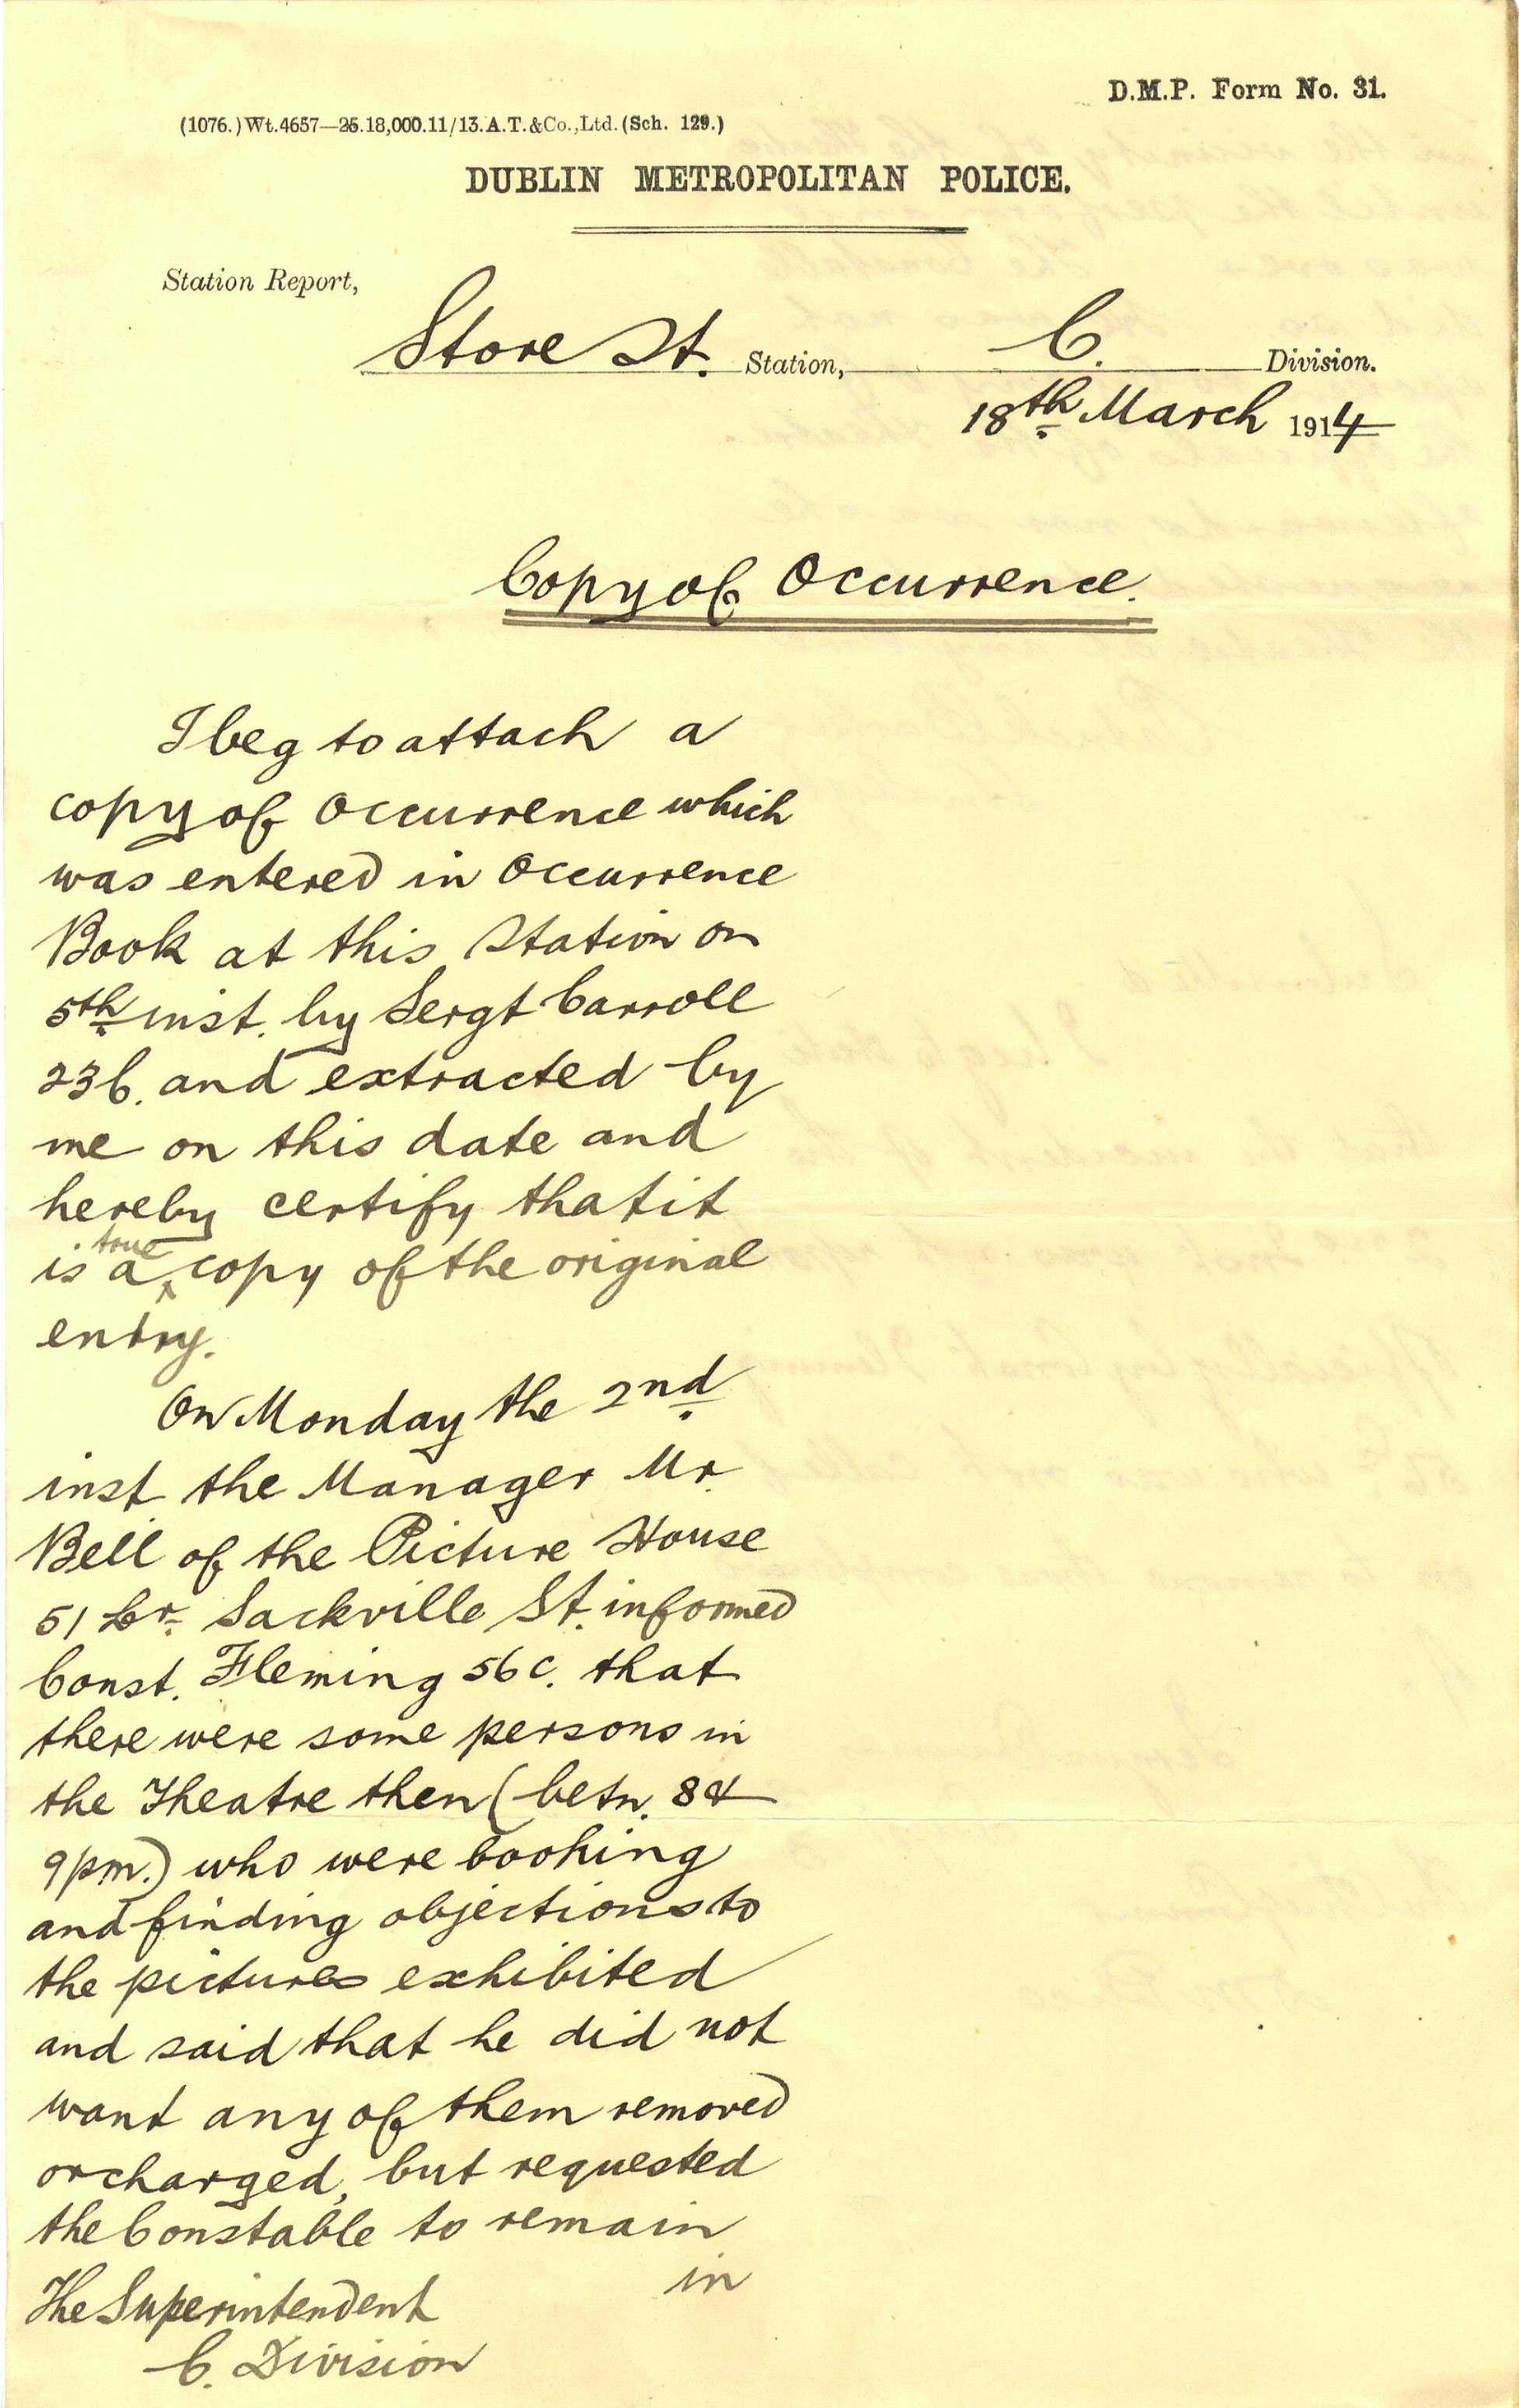 D.M.P. Form No. 31.
(1076.) Wt.4657—25.18,000.11/13.A.T.&Co.,Ltd. (Sch. 129.)
DUBLIN METROPOLITAN POLICE.
Station Report,
Store St. Station, C. Division.
18th March 1914
Copy of Occurrence.
I beg to attach a
copy of Occurrence which
was entered in Occurrence
Book at this Station on
5th inst. by Sergt Carroll
23C. and extracted by
me on this date and
hereby certify that it
is a true copy of the original
entry.
On Monday the 2nd
inst the Manager Mr.
Bell of the Picture House
51 Lr. Sackville St. informed
Const. Fleming 56C. that
there were some persons in
the Theatre then (betn. 8 &
9pm.) who were boohing
and finding objections to
the pictures exhibited
and said that he did not
want any of them removed
or charged, but requested
the Constable to remain
in
The Superintendent
C. Division